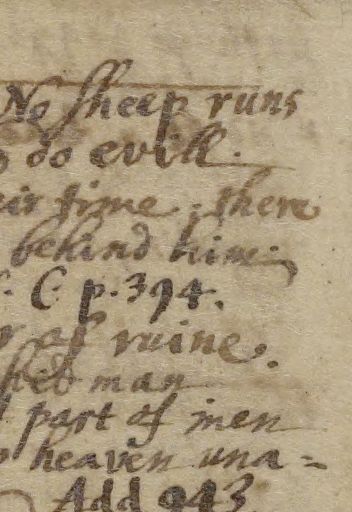 No sheep runs
do evill.
time, there
behind him.
C p. 394.
of ruine.
man
part of men
heaven una=
Add 943